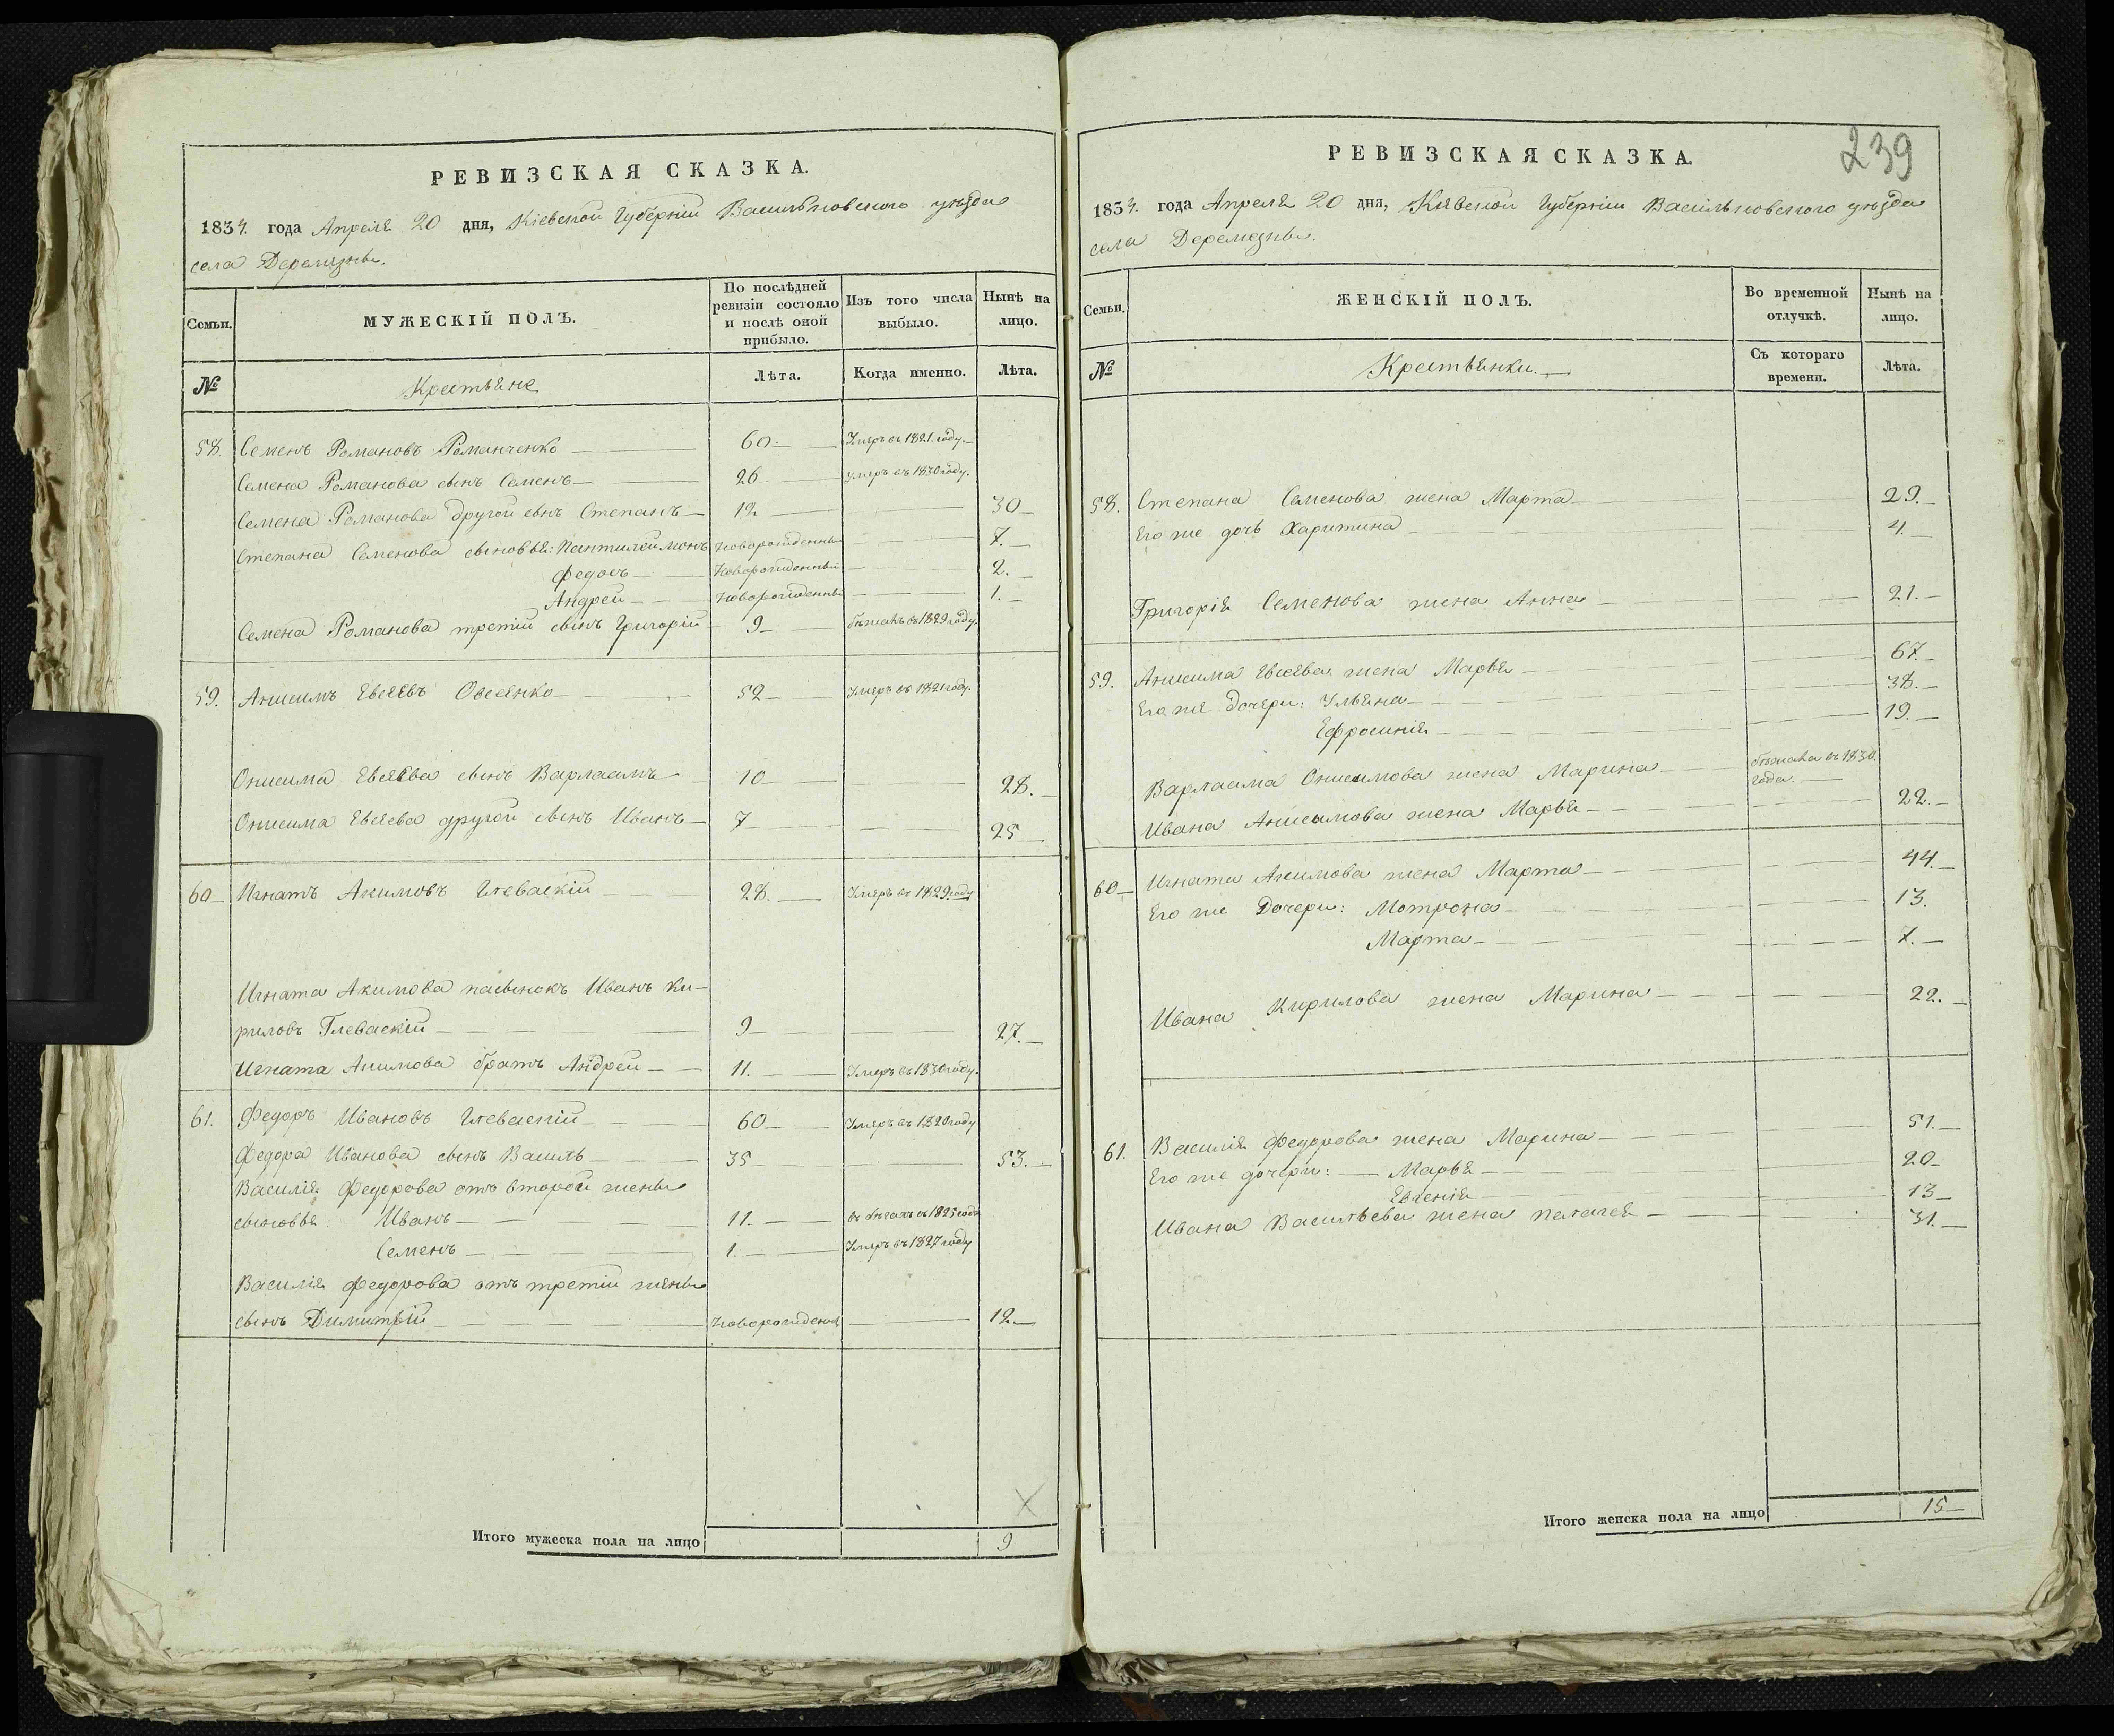 РЕВИЗСКАЯ СКАЗКА.
1834. года Апреля 20 дня, Кіевской Губерніи Васильковского уезда
села Деремезны.
Семьи. МУЖЕСКІЙ ПОЛЪ. По послѣдней ревизіи состояло и послѣ оной прибыло. Изъ того числа выбыло. Нынѣ на лицо.
№ Крестьяне Лѣта. Когда именно. Лѣта.
58. Семенъ Романовъ Романченко 60 Умеръ въ 1821. году.
Семена Романова сынъ Семенъ 26 умеръ въ 1830 году.
Семена Романова другой сынъ Степанъ 12 30
Степана Семенова сыновья: Пантилеймонъ новорожденны 7.
Федосъ Новорожденный 2.
Андрей новорожденны 1.
Семена Романова третій сынъ Григорій 9 бѣжалъ въ 1829 году.
59. Анисимъ Евсеевъ Овсеенко 52 Умеръ въ 1821 году.
Онисима Евсеева сынъ Варлаамъ 10 28.
Онисима Евсеева другой сынъ Иванъ 7 25
60 Игнатъ Акимовъ Глеваскій 28. Умеръ въ 1829 году
Игната Акимова пасынокъ Иванъ Ки-
риловъ Глеваскій 9 27.
Игната Акимова братъ Андрей 11. Умеръ въ 1830 году.
61. Федоръ Ивановъ Глеваскій 60 Умеръ въ 1820 году
Федора Иванова сынъ Василь 35 53.
Василія Федорова отъ второй жены
сыновья: Иванъ 11. въ бегахъ съ 1825 года
Семенъ 1. Умеръ въ 1827 году
Василія Федорова отъ третій жены
сынъ Димитрій новорожден 12
Итого мужеска пола на лицо 9
239
РЕВИЗСКАЯ СКАЗКА.
1834. года Апреля 20 дня, Киевской Губерніи Васильковского уезда
села Деремезны.
Семьи. ЖЕНСКІЙ ПОЛЪ. Во временной отлучкѣ. Нынѣ на лицо.
№ Крестьянки. Съ котораго времени. Лѣта.
58. Степана Семенова жена Марта 29.
Его же дочь Харитина 4.
Григорія Семенова жена Анна 21.
59. Анисима Евсеева жена Марья 67.
Его же дочери: Ульяна 38.
Ефросинія 19.
Варлаама Онисимова жена Марина бѣжала въ 1830.
года.
Ивана Анисимова жена Марья 22.
60 Игната Акимова жена Марта 44.
Его же Дочери: Мотрона 13.
Марта 7.
Ивана Кирилова жена Марина 22.
61. Василія Федорова жена Марина 51.
Его же дочери: Марья 20
Евгенія 13
Ивана Васильева жена Пелагея 31.
Итого женска пола на лицо 15